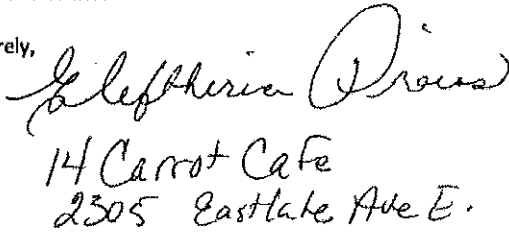 rely,
Eleftheria
14 Carrot Cafe
2305 Eastlake Ave E.